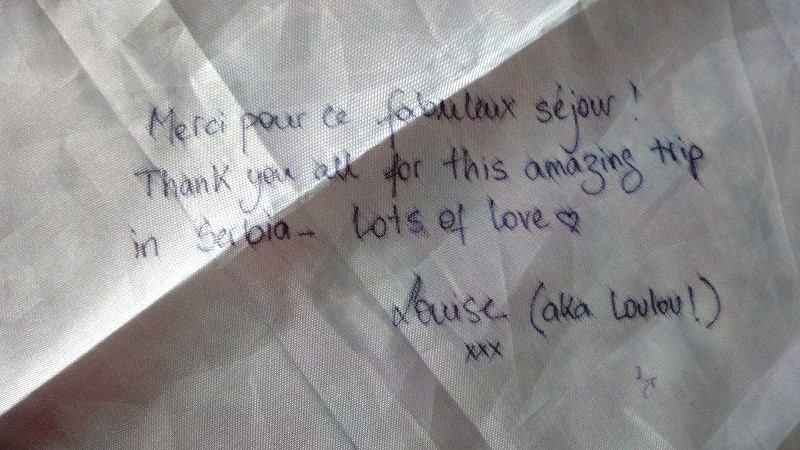 Merci pour ce fabuleux séjour !
Thank you all for this amazing trip
in Serbia - Lots of love ♡
Louise (aka Loulou !)
xxx